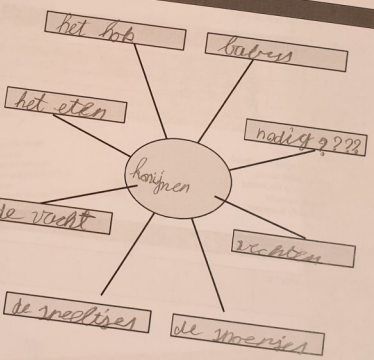 het hok
babys
het eten
nodig????
konijnen
de vacht
vechten
de speeltjes